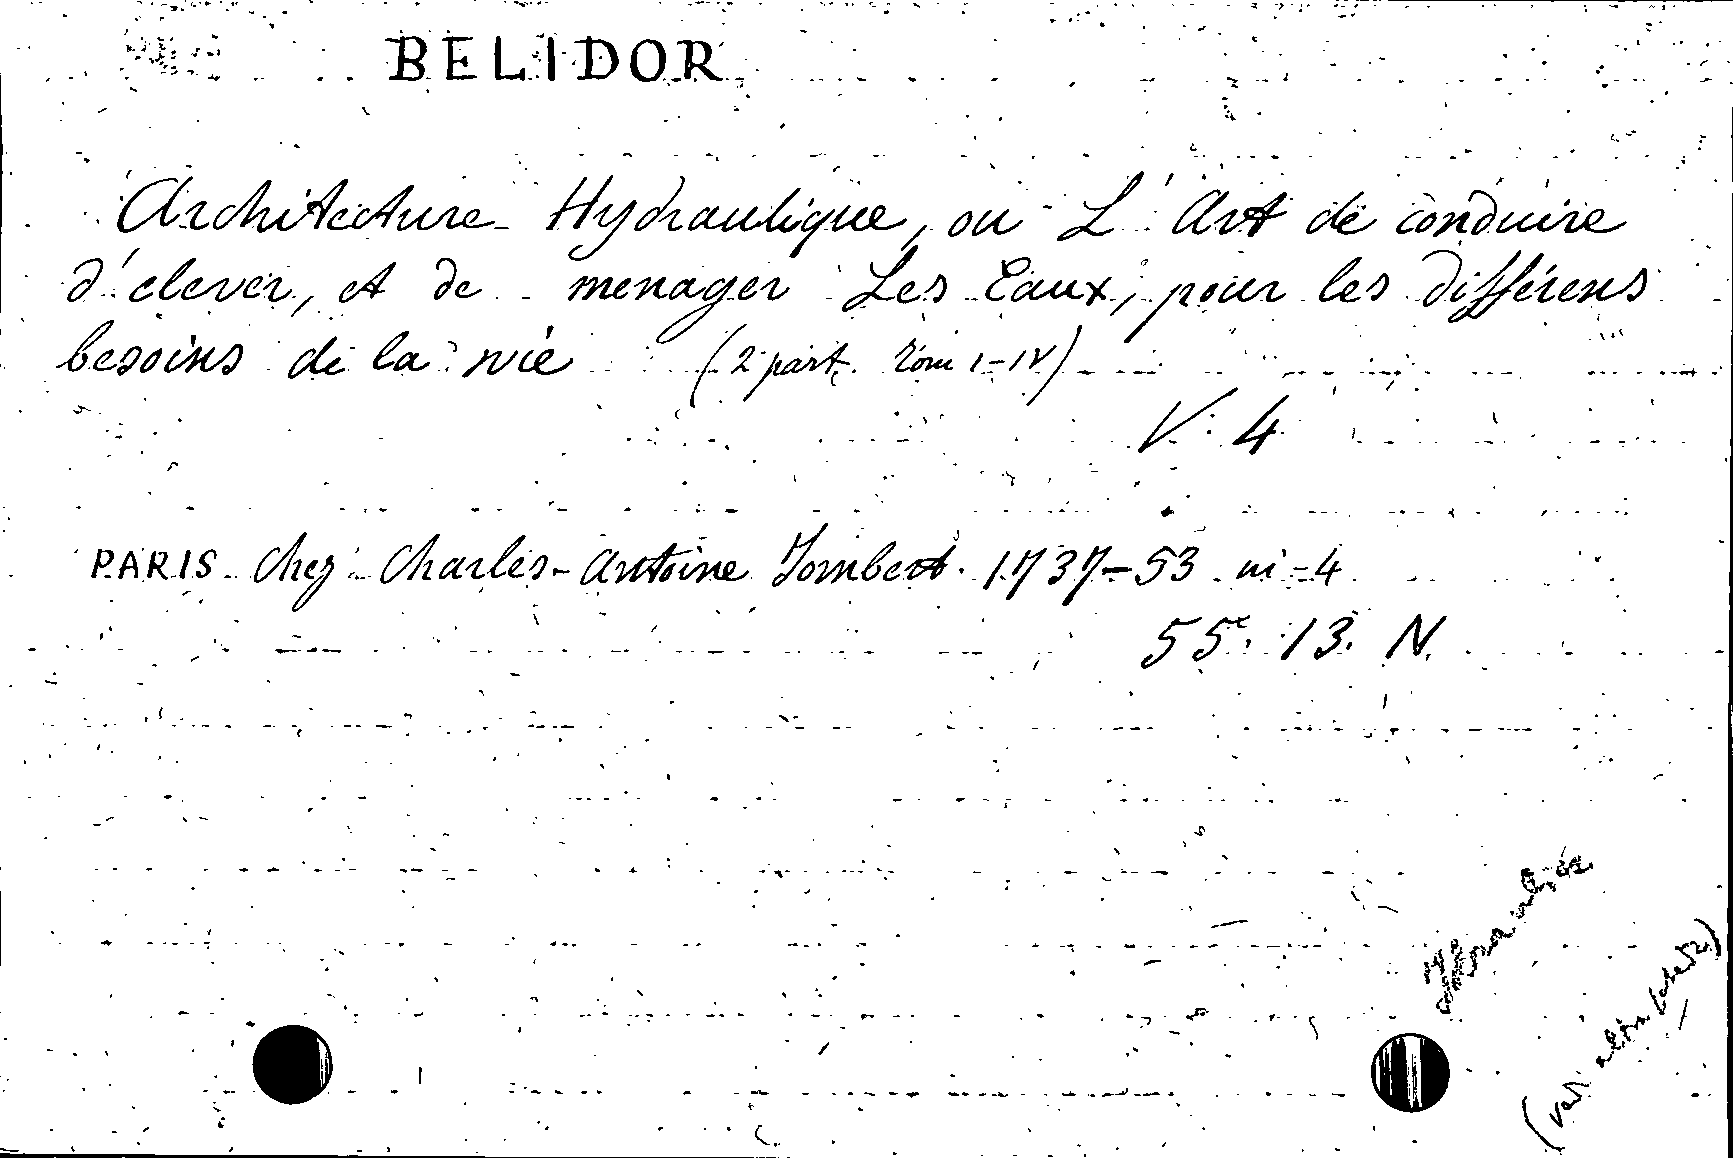 BELIDOR
Architecture Hydraulique, ou L'Art de conduire
d'elever, et de menager Les Eaux, pour les différens
besoins de la vie (2 part. Tom 1-IV)
V. 4
PARIS chez Charles-Antoine Jombert. 1737-53 in-4
55. 13. N.
(ved. altra